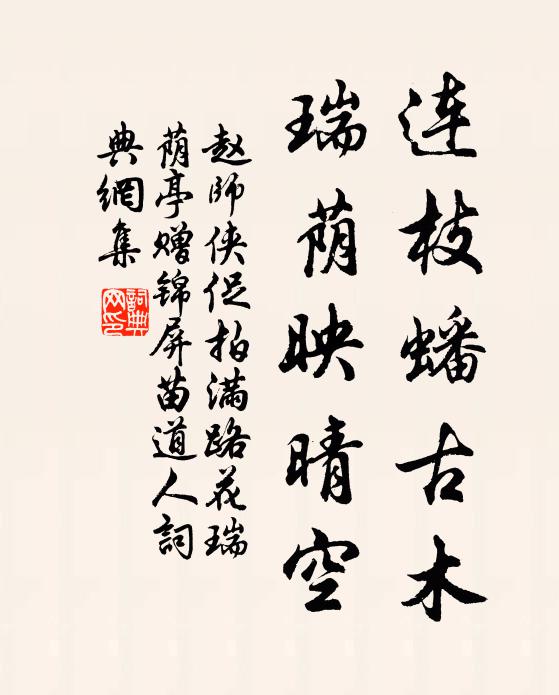 连枝蟠古木
瑞荫映晴空
赵师侠促拍满路花瑞
荫亭赠锦屏苗道人詞
典網集
詞典
网印